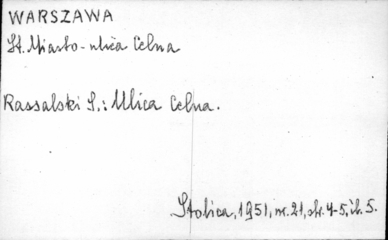 WARSZAWA
St. Miasto - ulica Celna
Rassalski S.: Ulica Celna.
Stolica, 1951, nr. 21, str. 4-5, il. 5.